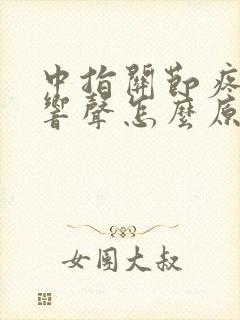 中指關節疼
響聲怎麼原
女團大叔